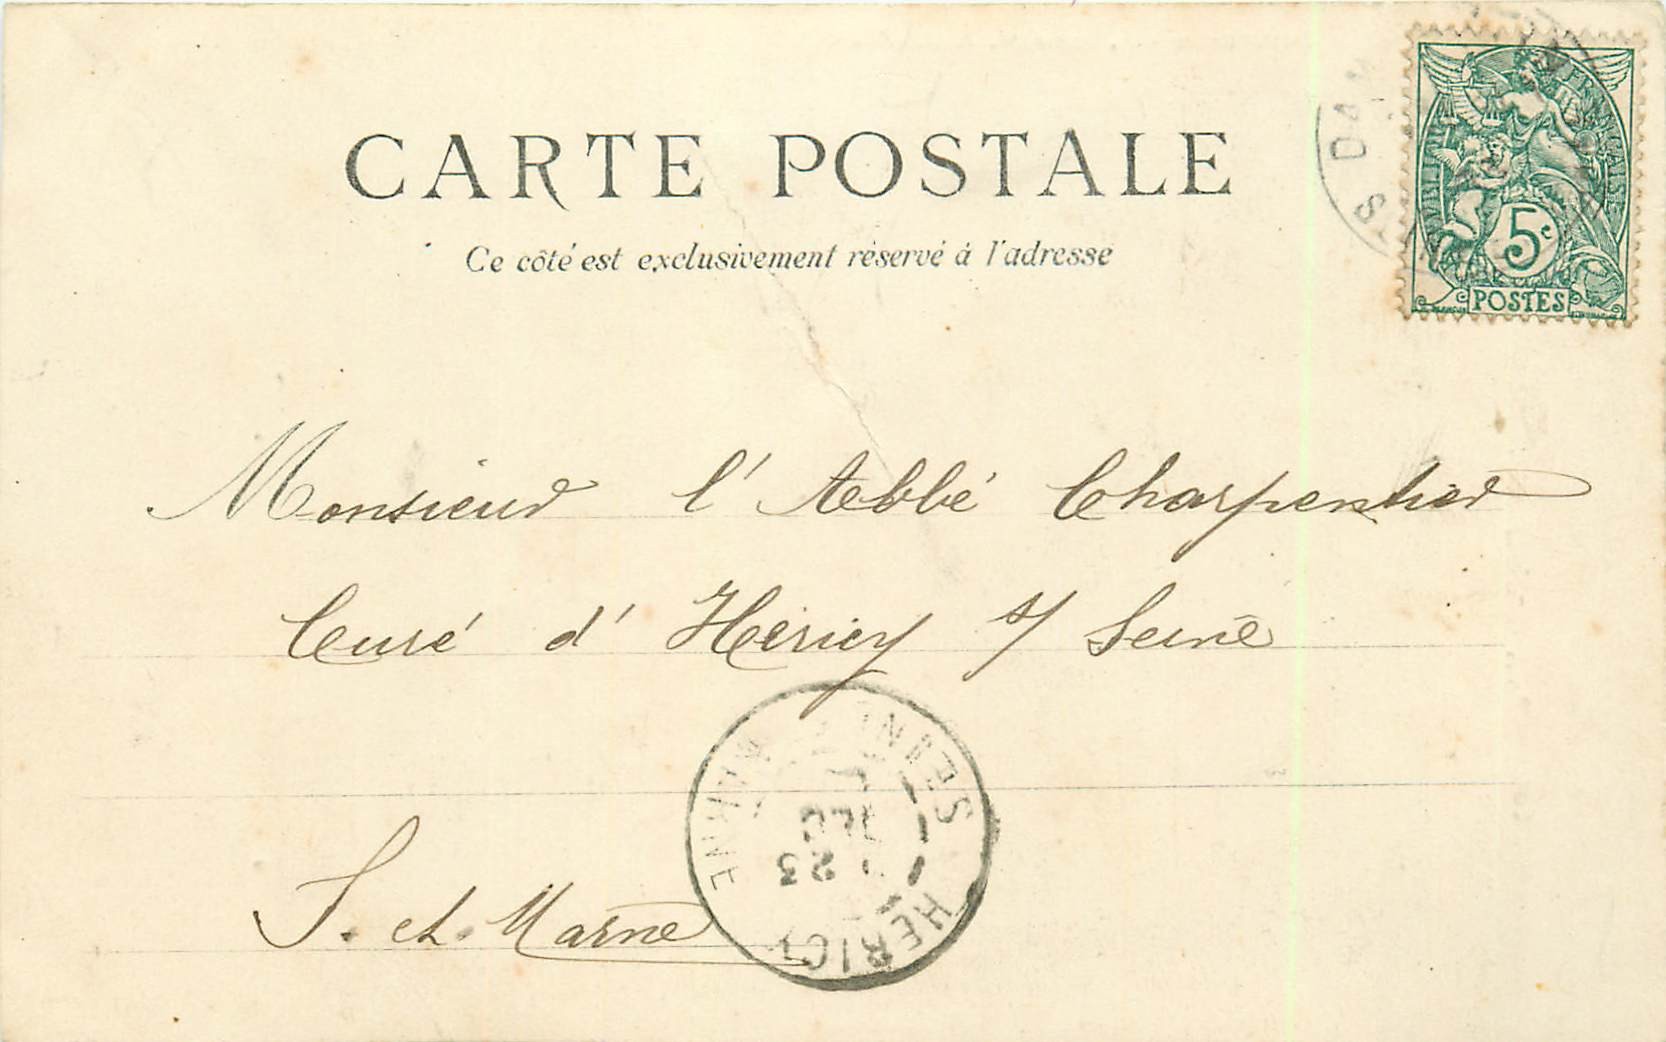 CARTE POSTALE
Ce côté est exclusivement réservé à l'adresse
RÉPUBLIQUE FRANÇAISE
5c
POSTES
Monsieur l'Abbé Charpentier
Curé d'Héricy s/ Seine
S. et Marne
HERICY
SEINE
MARNE
23